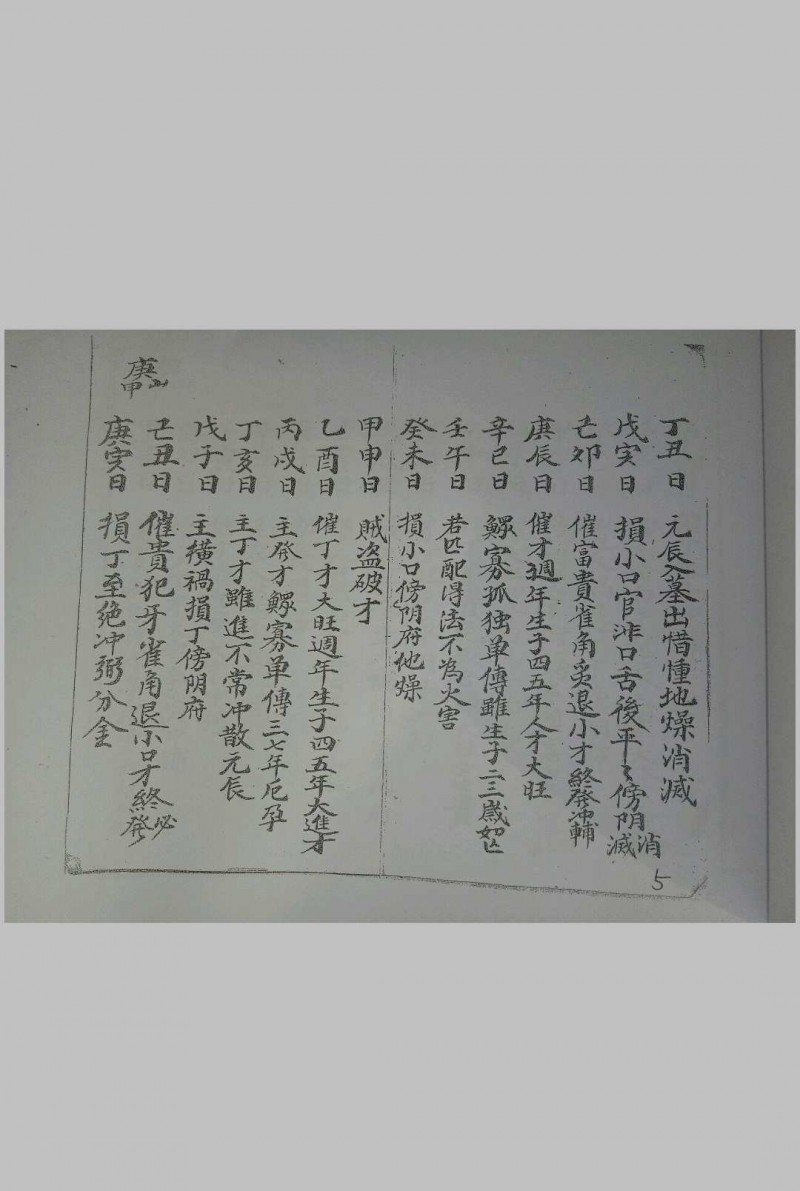 丁丑日 元辰入墓出惜憧地燥消滅
戊寅日 損小口官非口舌後平〻傍阴消滅
己卯日 催富貴雀角受退小才終發冲輔
庚辰日 催才週年生子四五年人才大旺
辛巳日 鰥寡孤独单傳雖生子二三歲如亡
壬午日 若匹配得法不為火害
癸未日 損小口傍阴府地燥
甲申日 賊盗破才
乙酉日 催丁才大旺週年生子四五年大進才
丙戌日 主發才鰥寡单傳三七年厄孕
丁亥日 主丁才雖進不常冲散元辰
戊子日 主横禍損丁傍阴府
己丑日 催貴犯牙雀角退小口才終必發
庚寅日 損丁至絶冲弼分金
庚甲山
5